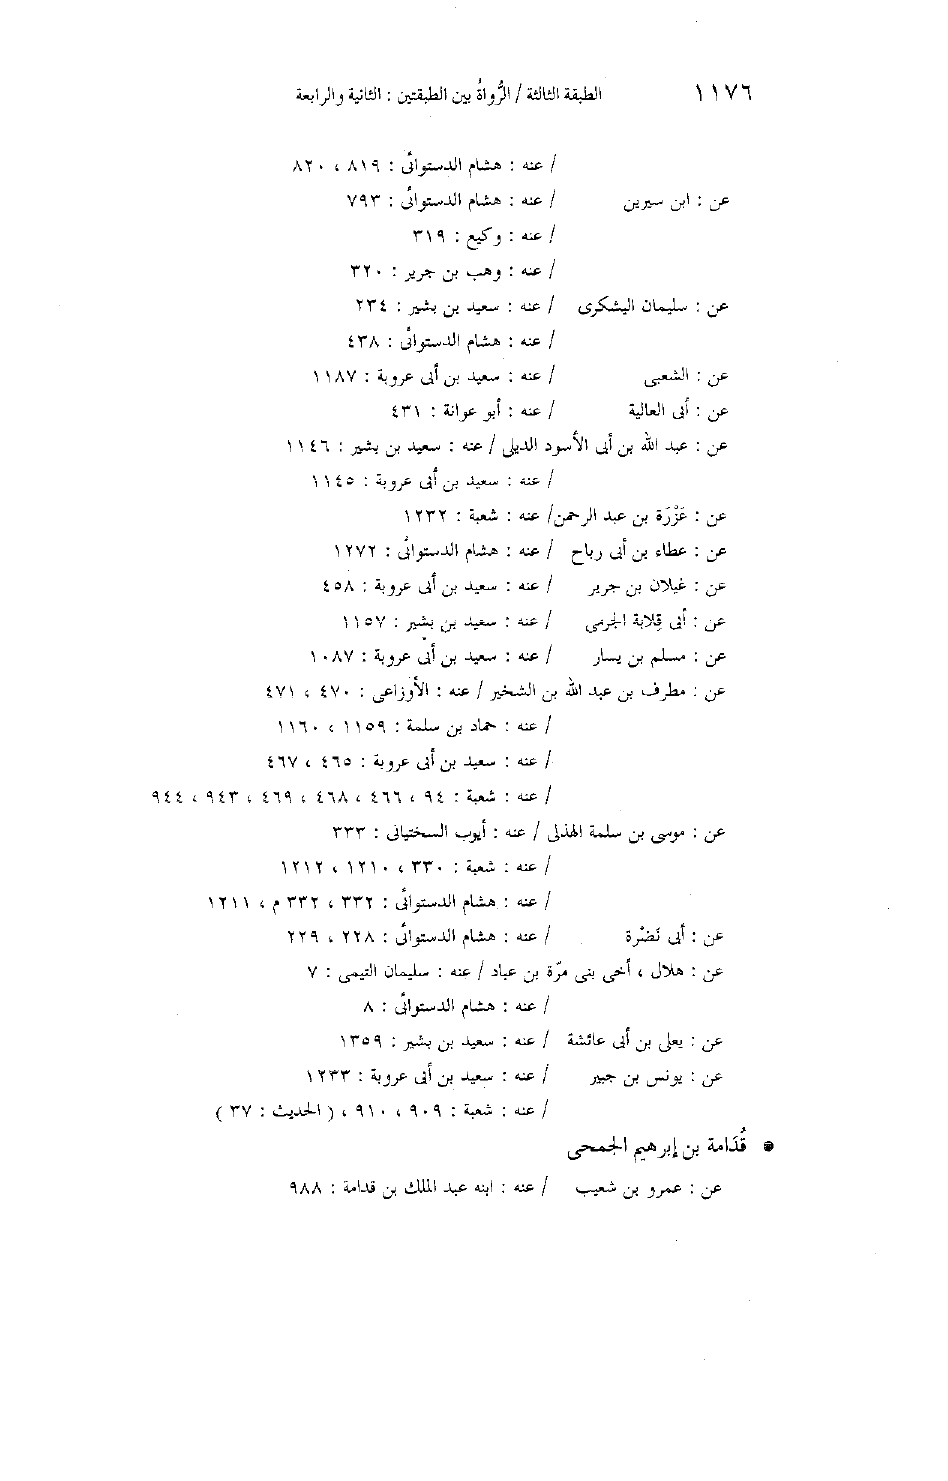 ١١٧٦ الطبقة الثالثة / الرُّواةُ بين الطبقتين : الثانية والرابعة
/ عنه : هشام الدستوائى : ٨١٩ ، ٨٢٠
عن : ابن سيرين / عنه : هشام الدستوائى : ٧٩٣
/ عنه : وكيع : ٣١٩
/ عنه : وهب بن جرير : ٣٢٠
عن : سليمان اليشكرى / عنه : سعيد بن بشير : ٢٣٤
/ عنه : هشام الدستوائى : ٤٣٨
عن : الشعبى / عنه : سعيد بن أبى عروبة : ١١٨٧
عن : أبى العالية / عنه : أبو عوانة : ٤٣١
عن : عبد الله بن أبى الأسود الديلى / عنه : سعيد بن بشير : ١١٤٦
/ عنه : سعيد بن أبى عروبة : ١١٤٥
عن : عَزْرَة بن عبد الرحمن/ عنه : شعبة : ١٢٣٢
عن : عطاء بن أبى رباح / عنه : هشام الدستوائى : ١٢٧٢
عن : غيلان بن جرير / عنه : سعيد بن أبى عروبة : ٤٥٨
عن : أبى قِلابة الجرمى / عنه : سعيد بن بشير : ١١٥٧
عن : مسلم بن يسار / عنه : سعيد بن أبى عروبة : ١٠٨٧
عن : مطرف بن عبد الله بن الشخير / عنه : الأوزاعى : ٤٧٠ ، ٤٧١
/ عنه : حماد بن سلمة : ١١٥٩ ، ١١٦٠
/ عنه : سعيد بن أبى عروبة : ٤٦٥ ، ٤٦٧
/ عنه : شعبة : ٩٤ ، ٤٦٦ ، ٤٦٨ ، ٤٦٩ ، ٩٤٣ ، ٩٤٤
عن : موسى بن سلمة الهذلى / عنه : أيوب السختيانى : ٣٣٣
/ عنه : شعبة : ٣٣٠ ، ١٢١٠ ، ١٢١٢
/ عنه : هشام الدستوائى : ٣٣٢ ، ٣٣٢ م ، ١٢١١
عن : أبى نَضْرة / عنه : هشام الدستوائى : ٢٢٨ ، ٢٢٩
عن : هلال ، أخى بنى مرّة بن عباد / عنه : سليمان التيمى : ٧
/ عنه : هشام الدستوائى : ٨
عن : يعلى بن أبى عائشة / عنه : سعيد بن بشير : ١٣٥٩
عن : يونس بن جبير / عنه : سعيد بن أبى عروبة : ١٢٣٣
/ عنه : شعبة : ٩٠٩ ، ٩١٠ ، ( الحديث : ٣٧ )
● قُدَامة بن إبرهيم الجمحى
عن : عمرو بن شعيب / عنه : ابنه عبد الملك بن قدامة : ٩٨٨